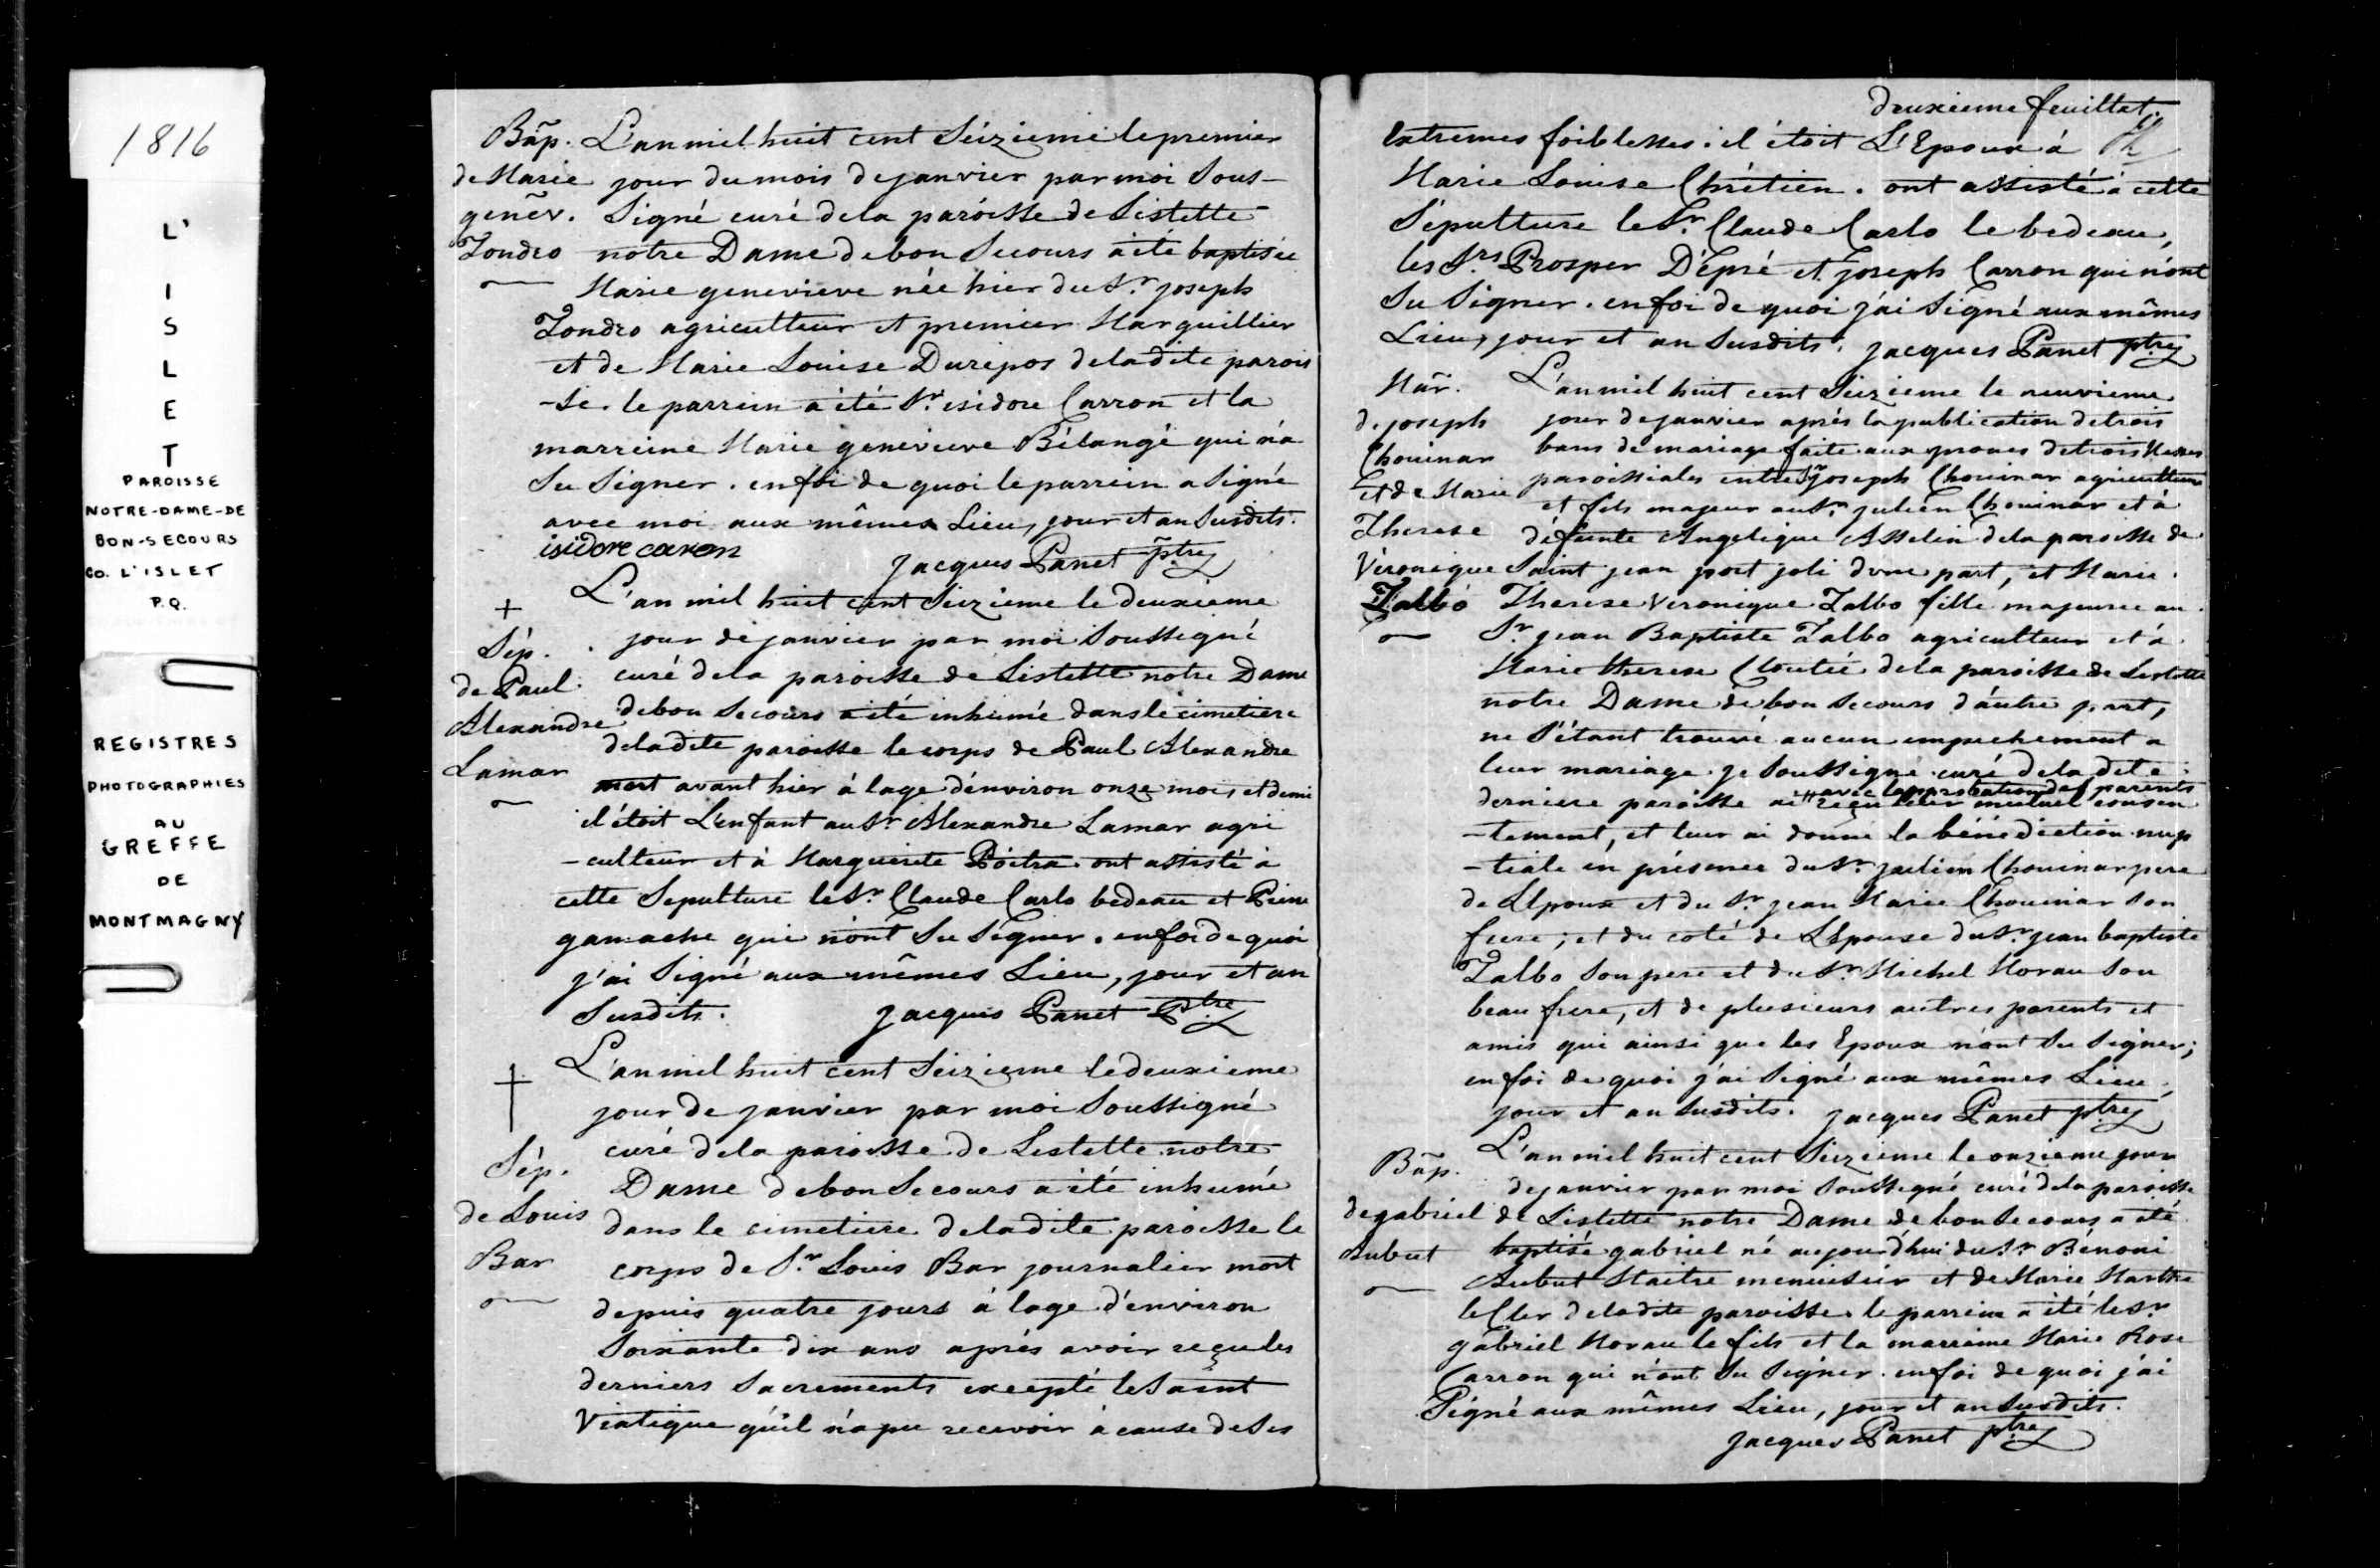 1816
L'
I
S
L
E
T
PAROISSE
NOTRE-DAME-DE
BON-SECOURS
CO. L'ISLET
P.Q.
REGISTRES
PHOTOGRAPHIES
AU
GREFFE
DE
MONTMAGNY
Bãp.
de Marie
geneṽ.
Zondro
L'an mil huit cent Seizieme le premier
jour du mois de janvier par moi Sous-
Signé curé de la paroisse de Listette
notre Dame de bon Secours a été baptisée
Marie genevieve née hier du Sr. joseph
Zondro agriculteur et premier Marguillier
et de Marie Louise Durepos de la dite parois
-se. le parrein a été Sr. isidore Carron et la
marreine Marie genevieve Bélangé qui n'a
Su Signer. en foi de quoi le parrein a Signé
avec moi aux mêmes Lieu, jour et an Susdits.
isidore caron
jacques Panet ptre
+
Sép.
de Paul
Alexandre
Lamar
L'an mil huit cent Seizieme le deuxieme
jour de janvier par moi Soussigné
curé de la paroisse de Listette notre Dame
de bon Secours a été inhumé dans le cimetiere
de la dite paroisse le corps de Paul Alexandre
mort avant hier à lage d'environ onze mois et demi
il étoit L'enfant au Sr. Alexandre Lamar agri
-culteur et à Marguerite Poitra. ont assisté à
cette Sepulture le Sr. Claude Carlo bedeau et Pierre
gamache qui n'ont Su Signer. en foi de quoi
j'ai Signé aux mêmes Lieu, jour et an
Susdits.
jacques Panet Ptre
†
Sép.
de Louis
Bar
L'an mil huit cent Seizieme le deuxieme
jour de janvier par moi Soussigné
curé de la paroisse de Listette notre
Dame de bon Secours a été inhumé
dans le cimetiere de la dite paroisse le
corps de Sr. Louis Bar journalier mort
depuis quatre jours à lage d'environ
Soixante dix ans aprés avoir reçu les
derniers Sacrements excepté le Saint
Viatique qu'il n'a pu recevoir à cause de Ses
deuxieme feuillet.
extremes foiblesses. il étoit L'Epoux à
Marie Louise Chrétien. ont assisté à cette
Sépulture le Sr. Claude Carlo le bedeau,
les Srs Prosper D'épré et joseph Carron qui n'ont
Su Signer. en foi de quoi j'ai Signé aux mêmes
Lieu, jour et an Susdits. jacques Panet ptre
Mãr.
de joseph
Chouinar
et de Marie
Therese
Véronique
Talbo
L'an mil huit cent Seizieme le neuvieme
jour de janvier après la publication de trois
bans de mariage faite aux prones de trois Messes
paroissiales entre Sr joseph Chouinar agriculteur
et fils majeur au Sr. julien Chouinar et à
défunte Angelique Asselin de la paroisse de
Saint jean port joli d'une part, et Marie
Therese Veronique Talbo fille majeure au
Sr. jean Baptiste Talbo agriculteur et à
Marie therese Cloutié de la paroisse de Listette
notre Dame de bon Secours d'autre part,
ne S'étant trouvé aucun empechement a
leur mariage. je Soussigné curé de la dite
avec l'approbation des parents
derniere paroisse ai " reçu leur mutuel consen
-tement, et leur ai donné la bénédiction nup
-tiale en présence du Sr. julien Chouinar pere
de L'Epoux et du Sr. jean Marie Chouinar Son
frere; et du coté de L'Epouse du Sr. jean baptiste
Talbo Son pere et du Sr. Michel Morau Son
beau frere, et de plusieurs autres parents et
amis qui ainsi que les Epoux n'ont Su Signer;
en foi de quoi j'ai Signé aux mêmes Lieu,
jour et an Susdits. jacques Panet ptre
Bãp.
de gabriel
Aubut
L'an mil huit cent Seizieme le onzieme jour
de janvier par moi Soussigné curé de la paroisse
de Listette notre Dame de bon Secours a été
baptisé gabriel né aujourd'hui du Sr. Bénoni
Aubut Maitre menuisier et de Marie Marthe
le Cler de la dite paroisse. le parrein a été le Sr.
gabriel Morau le fils et la marreine Marie Rose
Carron qui n'ont Su Signer. en foi de quoi j'ai
Signé aux mêmes Lieu, jour et an Susdits.
jacques Panet ptre